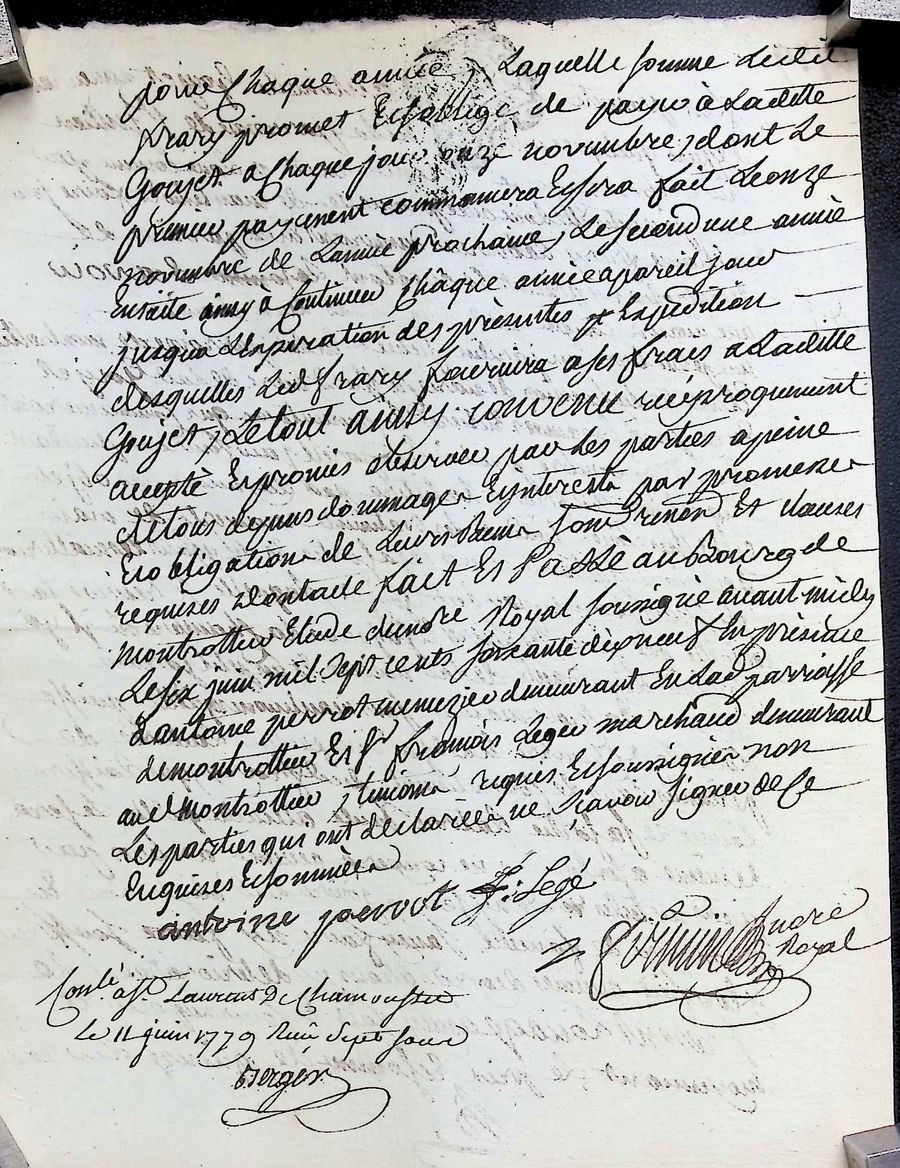 pour Chaque année, Laquelle somme Ledit
frary promet Et soblige de payer à Laditte
Goujet a Chaque jour onze novembre, dont Le
premier payement commancera Et sera fait Le onze
novembre de Lannée prochaine, Le second une année
Ensuite ainsy à Continuer Châque année a pareil jour
jusqua Lexpiration des présentes Expedition
desquelles Led frary fournira a ses frais a Laditte
Goujet, Le tout ainsy convenu réciproquement
accepté Et promis observer par Les parties a peine
de tous depens dommages Et interests par promesses
Et obligations de Leurs Biens soum renon Et clauses
requises Dont acte fait Et Passé au Bourg de
montrottier Etude du nore Royal soussigné avant midy
Le six juin mil sept cents soixante dix neuf En présence
dantoine perrot menuzier demeurant En Lad parroisse
de montrottier Et Sr francois Leger marchand demeurant
aud montrottier, temoins requis Et soussignés non
Les parties qui ont déclarées ne sçavoir signer de Ce
Enquises Et sommées
antoine perrot f: Legé
nore
Royal
Conlé a St. Laurent De Chamousset
Le 11 juin 1779 Reçu Sept sous
Berger